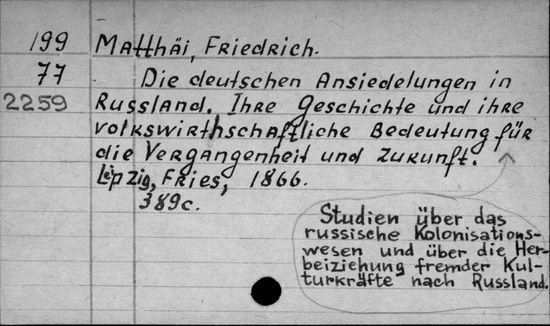 199 Matthäi, Friedrich.
77 Die deutschen Ansiedelungen in
2259 Russland. Ihre Geschichte und ihre
volkswirthschaftliche Bedeutung für
die Vergangenheit und Zukunft.
Leipzig, Fries, 1866.
389c.
Studien über das
russische Kolonisations-
wesen und über die Her-
beiziehung fremder Kul-
turkräfte nach Russland.